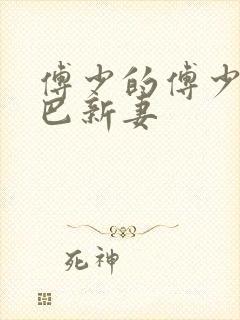 傅少的傅少
巴新妻
死神